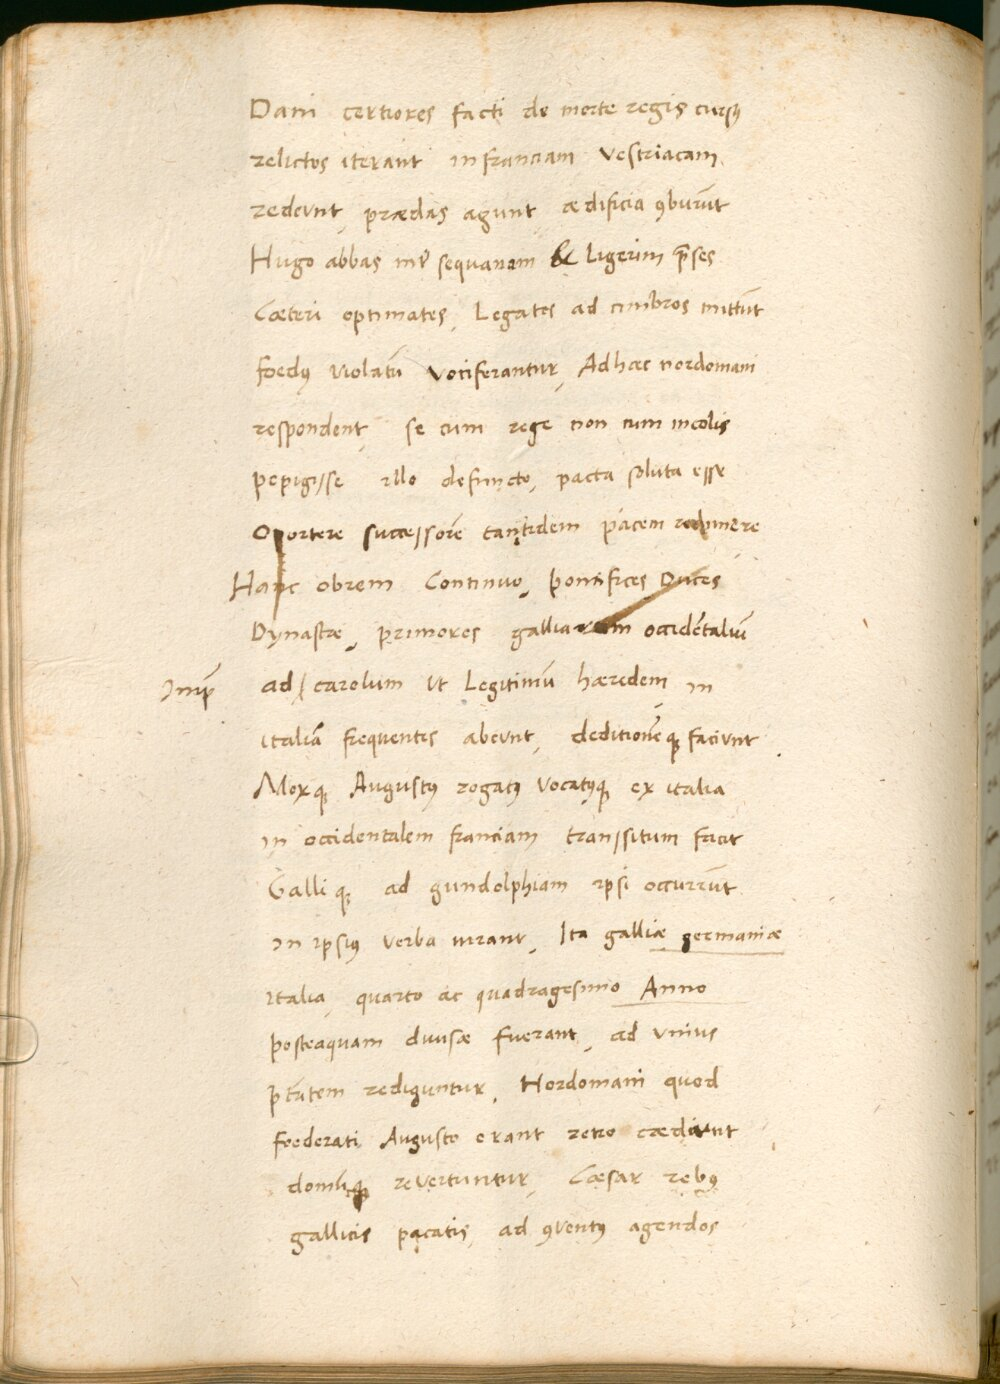 Dani certiores facti de morte regis cursꝰ
relictos iterant in franciam Vestriacam
redeunt, prædas agunt ædificia ꝯburūt
Hugo abbas int̄ sequanam & ligerim p̄ses
Cæteri optimates, Legatos ad cimbros mittūt
foedꝰ violatū vociferantur, Ad hæc nordomani
respondent, se cum rege non cum incolis
pepigisse illo defuncto, pacta soluta esse
Oportere successorē tantidem pacem redimere
Hanc obrem Continuo, pontifices Duces
Dynastæ, primores galliarum occidētaliū
Imp̄ ad carolum ut Legitimū hæredem in
italiā frequentes abeunt, deditionēqꝫ faciunt.
Moxqꝫ Augustꝰ rogatꝰ vocatꝰqꝫ ex italia
in occidentalem franciam transsitum facit
Galliqꝫ ad gundolphiam ipsi occurrūt
in ipsiꝰ verba iurant, Ita galliæ germaniæ
italia, quarto ac quadragesimo Anno
posteaquam diuisæ fuerant, ad vnius
p̄tātem rediguntur, Nordomani quod
foederati Augusto erant retro cædunt
domūqꝫ revertuntur, Cæsar rebꝰ
gallicis pacatis, ad ꝯventꝰ agendos